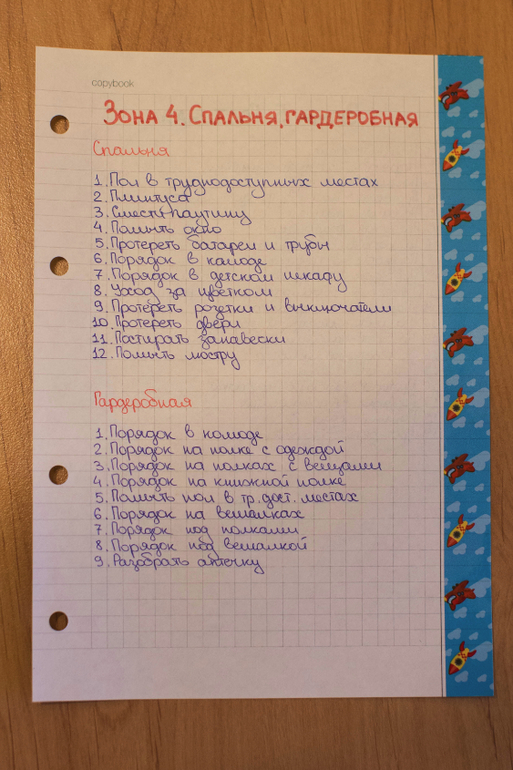 copybook
Зона 4. Спальня, гардеробная
Спальня
1. Пол в труднодоступных местах
2. Плинтуса
3. Смести паутину
4. Помыть окно
5. Протереть батареи и трубы
6. Порядок в комоде
7. Порядок в детском шкафу
8. Уход за цветком
9. Протереть розетки и выключатели
10. Протереть двери
11. Постирать занавески
12. Помыть люстру
Гардеробная
1. Порядок в комоде
2. Порядок на полке с одеждой
3. Порядок на полках с вещами
4. Порядок на книжной полке
5. Помыть пол в тр. дост. местах
6. Порядок на вешалках
7. Порядок под полками
8. Порядок под вешалкой
9. Разобрать аптечку